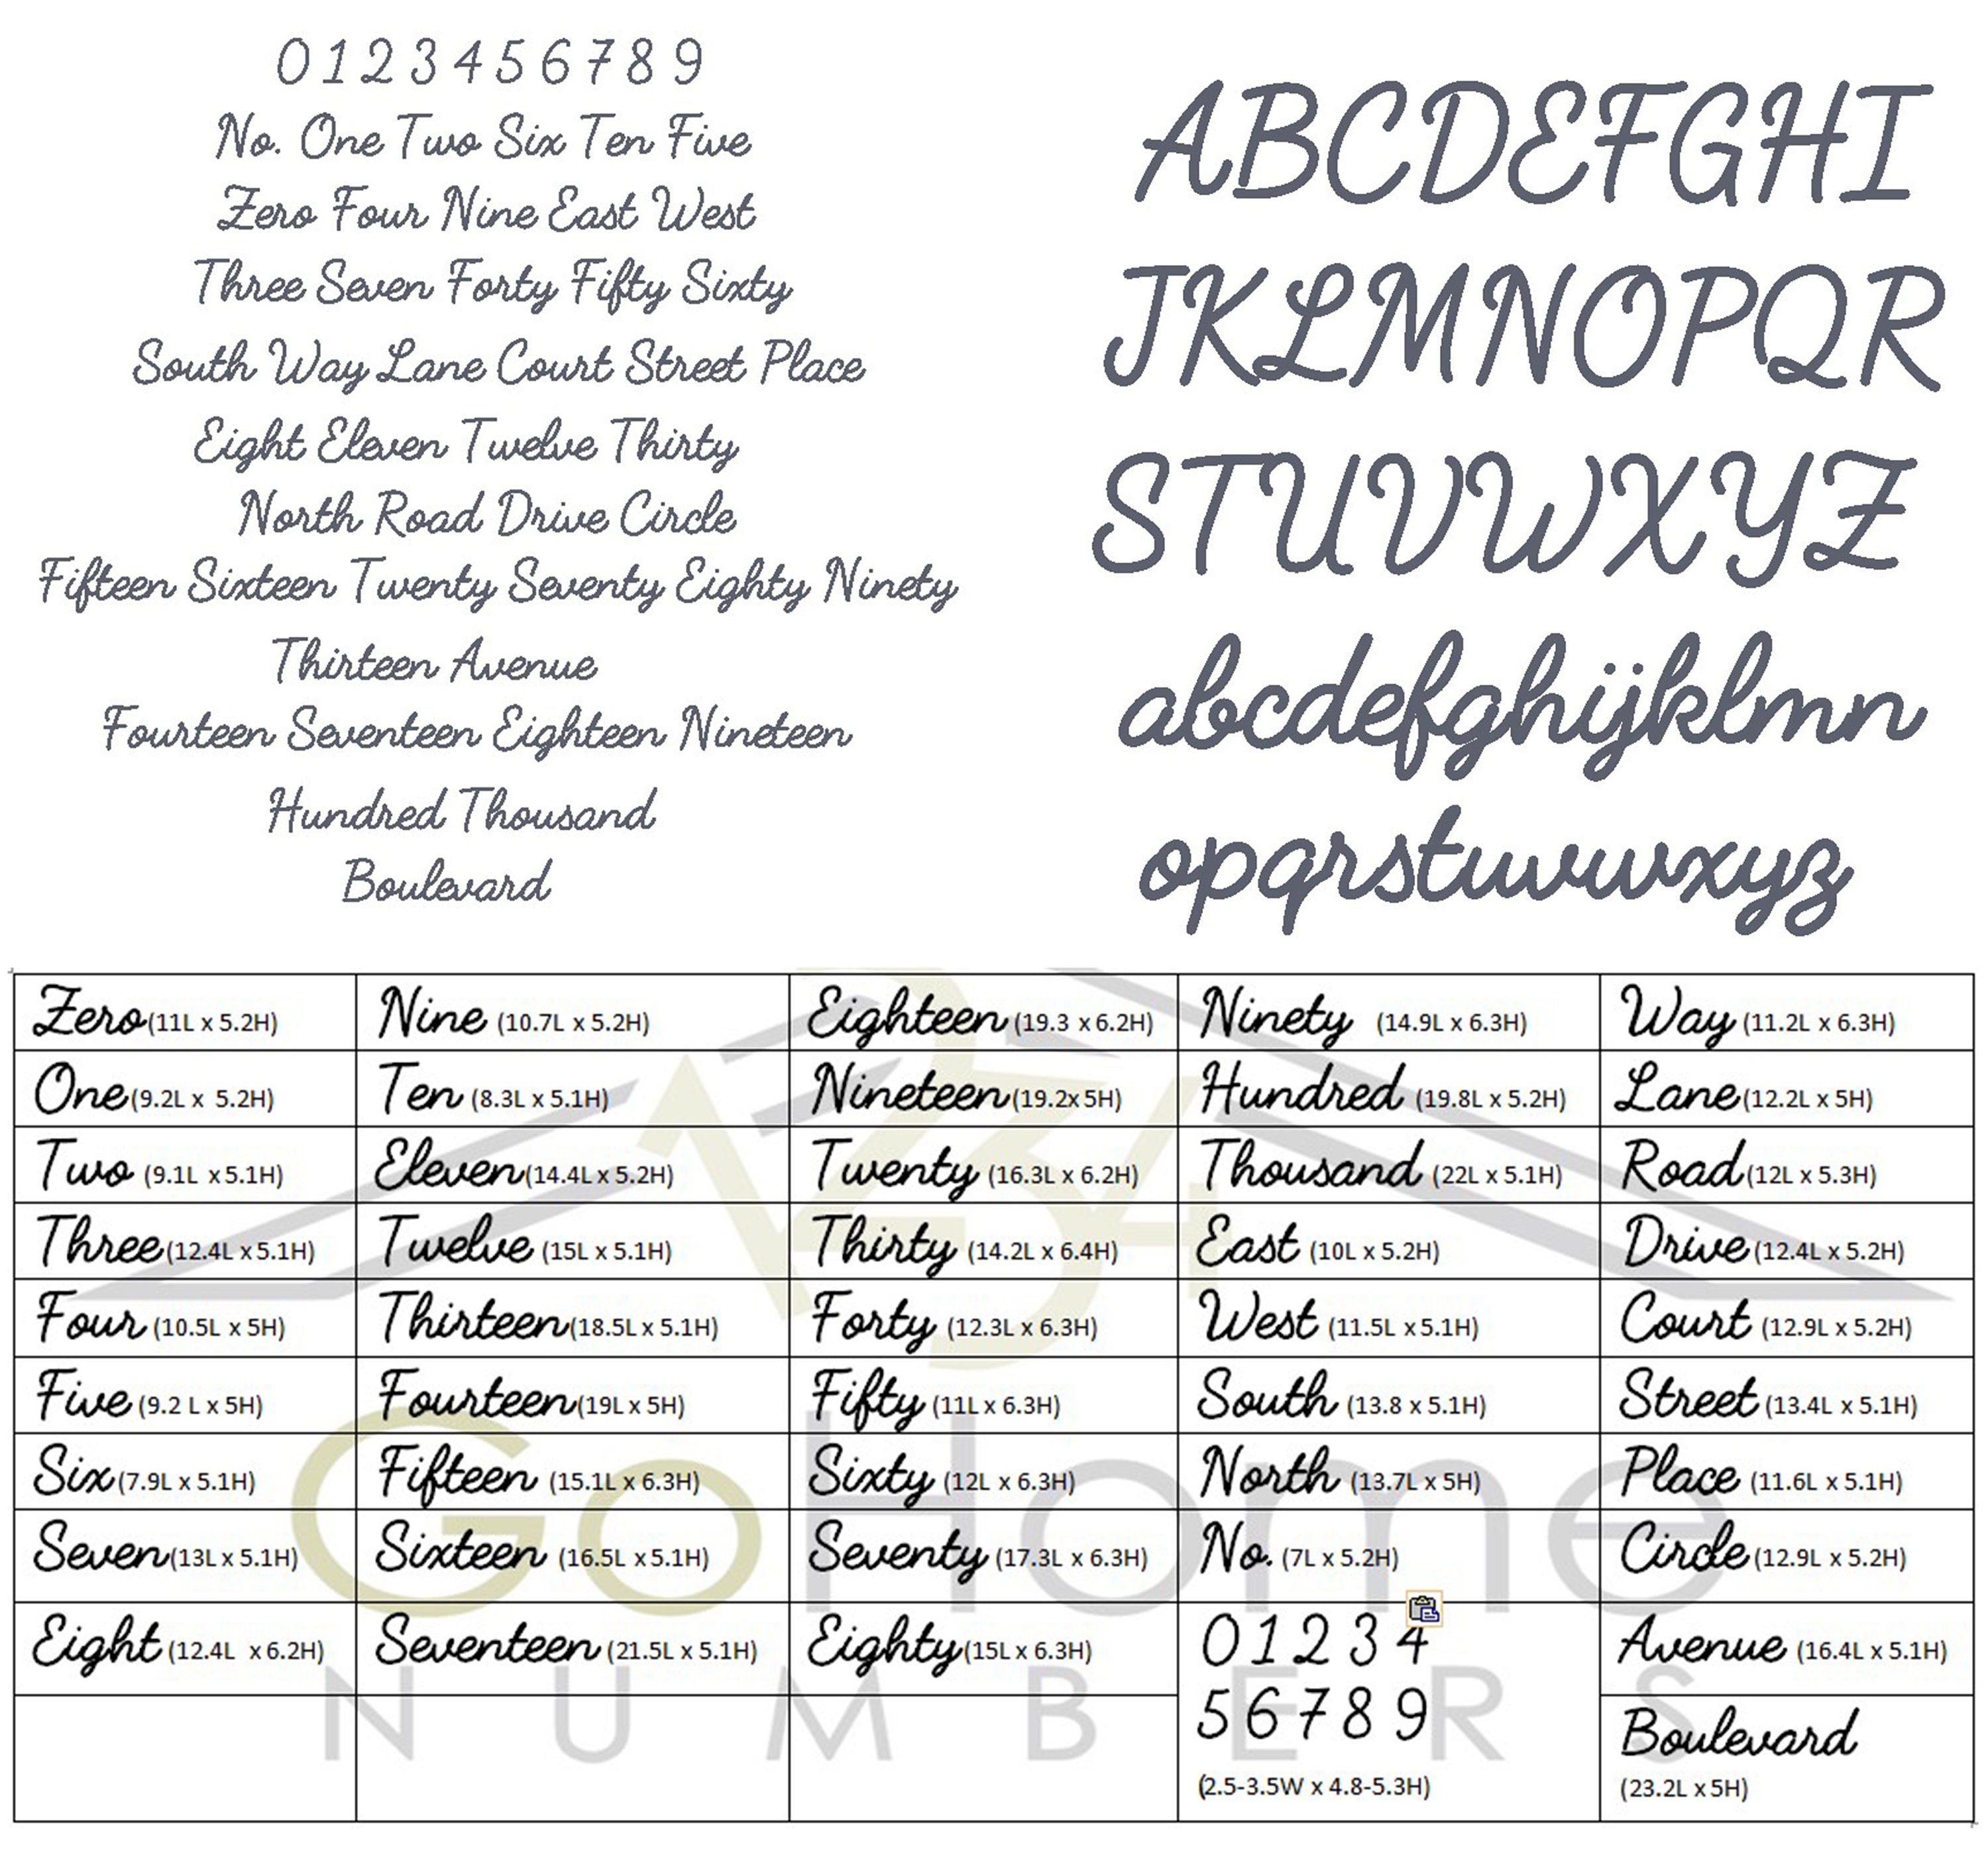 0 1 2 3 4 5 6 7 8 9
No. One Two Six Ten Five
Zero Four Nine East West
Three Seven Forty Fifty Sixty
South Way Lane Court Street Place
Eight Eleven Twelve Thirty
North Road Drive Circle
Fifteen Sixteen Twenty Seventy Eighty Ninety
Thirteen Avenue
Fourteen Seventeen Eighteen Nineteen
Hundred Thousand
Boulevard
ABCDEFGHI
JKLMNOPQR
STUVWXYZ
abcdefghijklmn
opqrstuvwxyz
Zero (11L x 5.2H) Nine (10.7L x 5.2H) Eighteen (19.3 x 6.2H) Ninety (14.9L x 6.3H) Way (11.2L x 6.3H)
One (9.2L x 5.2H) Ten (8.3L x 5.1H) Nineteen (19.2x 5H) Hundred (19.8L x 5.2H) Lane (12.2L x 5H)
Two (9.1L x 5.1H) Eleven (14.4L x 5.2H) Twenty (16.3L x 6.2H) Thousand (22L x 5.1H) Road (12L x 5.3H)
Three (12.4L x 5.1H) Twelve (15L x 5.1H) Thirty (14.2L x 6.4H) East (10L x 5.2H) Drive (12.4L x 5.2H)
Four (10.5L x 5H) Thirteen (18.5L x 5.1H) Forty (12.3L x 6.3H) West (11.5L x 5.1H) Court (12.9L x 5.2H)
Five (9.2 L x 5H) Fourteen (19L x 5H) Fifty (11L x 6.3H) South (13.8 x 5.1H) Street (13.4L x 5.1H)
Six (7.9L x 5.1H) Fifteen (15.1L x 6.3H) Sixty (12L x 6.3H) North (13.7L x 5H) Place (11.6L x 5.1H)
Seven (13L x 5.1H) Sixteen (16.5L x 5.1H) Seventy (17.3L x 6.3H) No. (7L x 5.2H) Circle (12.9L x 5.2H)
Eight (12.4L x 6.2H) Seventeen (21.5L x 5.1H) Eighty (15L x 6.3H) 0 1 2 3 4 Avenue (16.4L x 5.1H)
5 6 7 8 9 Boulevard
(2.5-3.5W x 4.8-5.3H) (23.2L x 5H)
1234
GoHome
NUMBERS